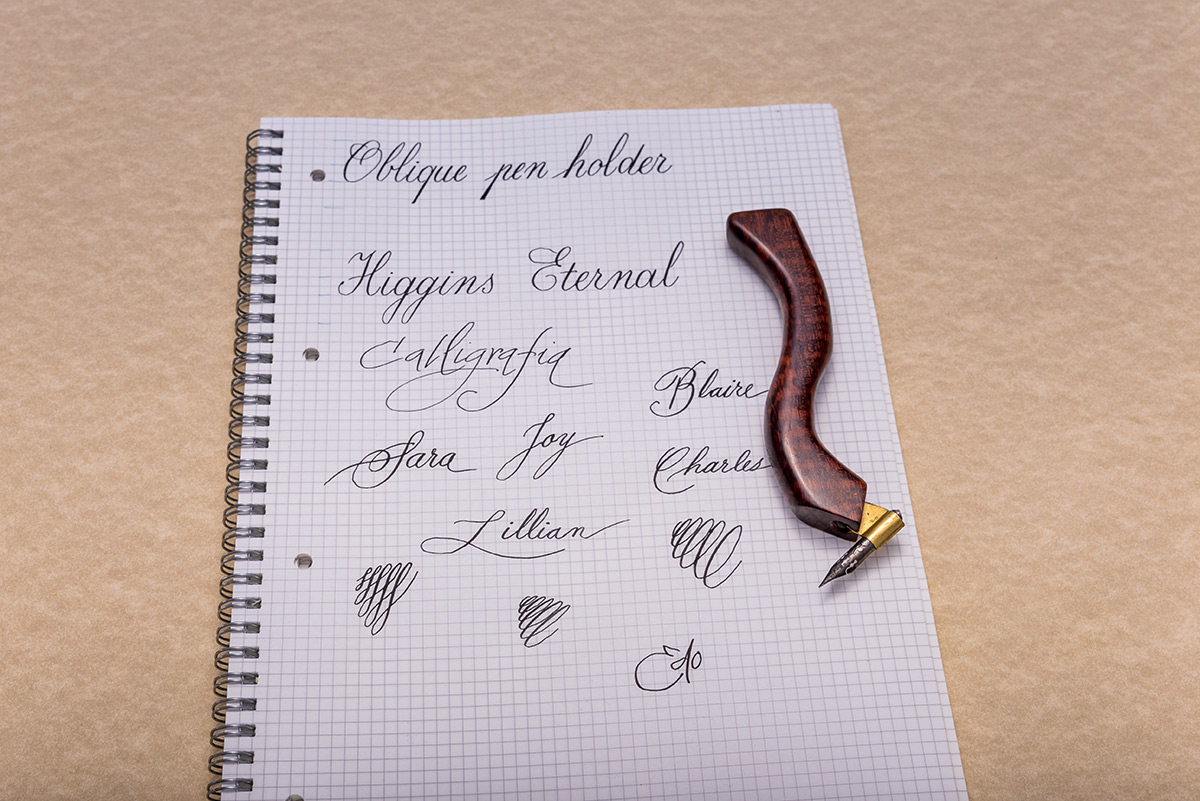 Oblique pen holder
Higgins Eternal
Calligrafia
Blaire
Sara Joy
Charles
Lillian